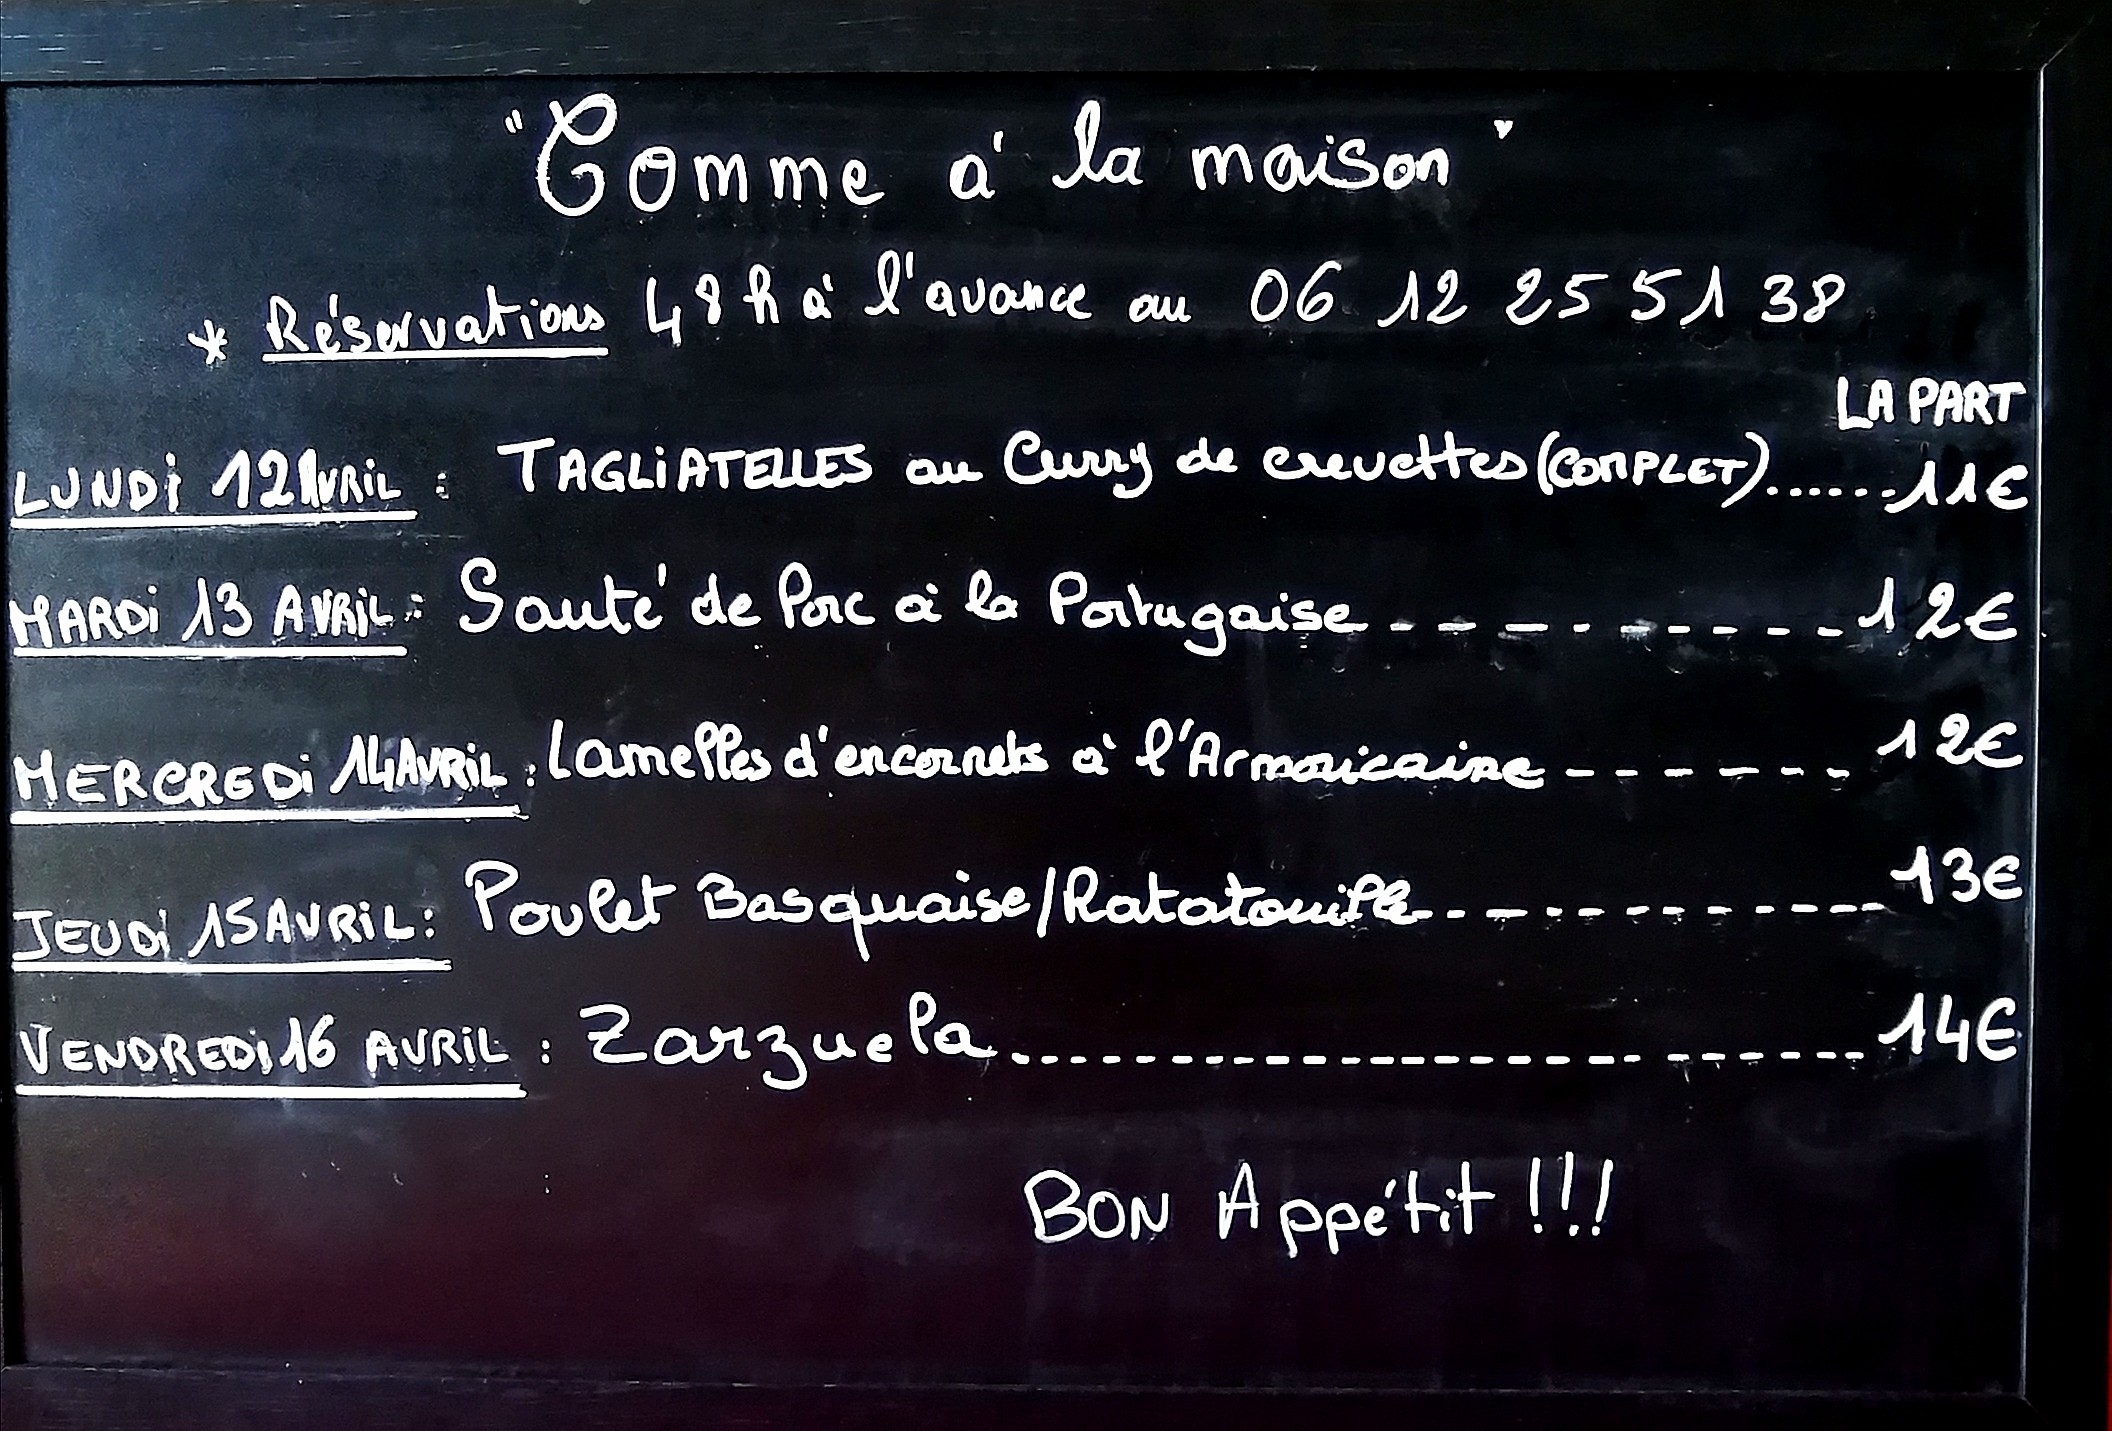 "Comme à la maison"
* Réservations 48h à l'avance au 06 12 25 51 38
LA PART
LUNDi 12 AVRiL : TAGLiATELLES au Curry de crevettes (COMPLET)......11€
MARDi 13 AVRiL : Sauté de Porc à la Portugaise----------12€
MERCREDi 14 AVRiL : Lamelles d'encornets à l'Armoricaine------12€
JEUDi 15 AVRiL : Poulet Basquaise/Ratatouille-----------13€
VENDREDi 16 AVRiL : Zarzuela......................14€
BON Appétit !!!